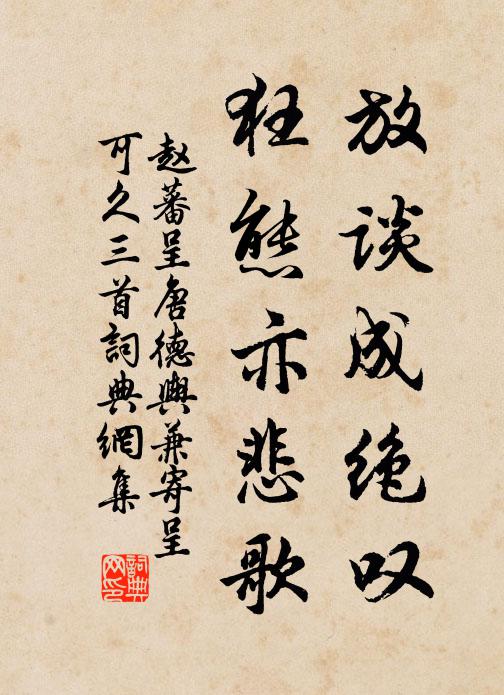 放谈成绝叹
狂態亦悲歌
赵蕃呈唐德輿兼寄呈
可久三首詞典網集
詞典
网印